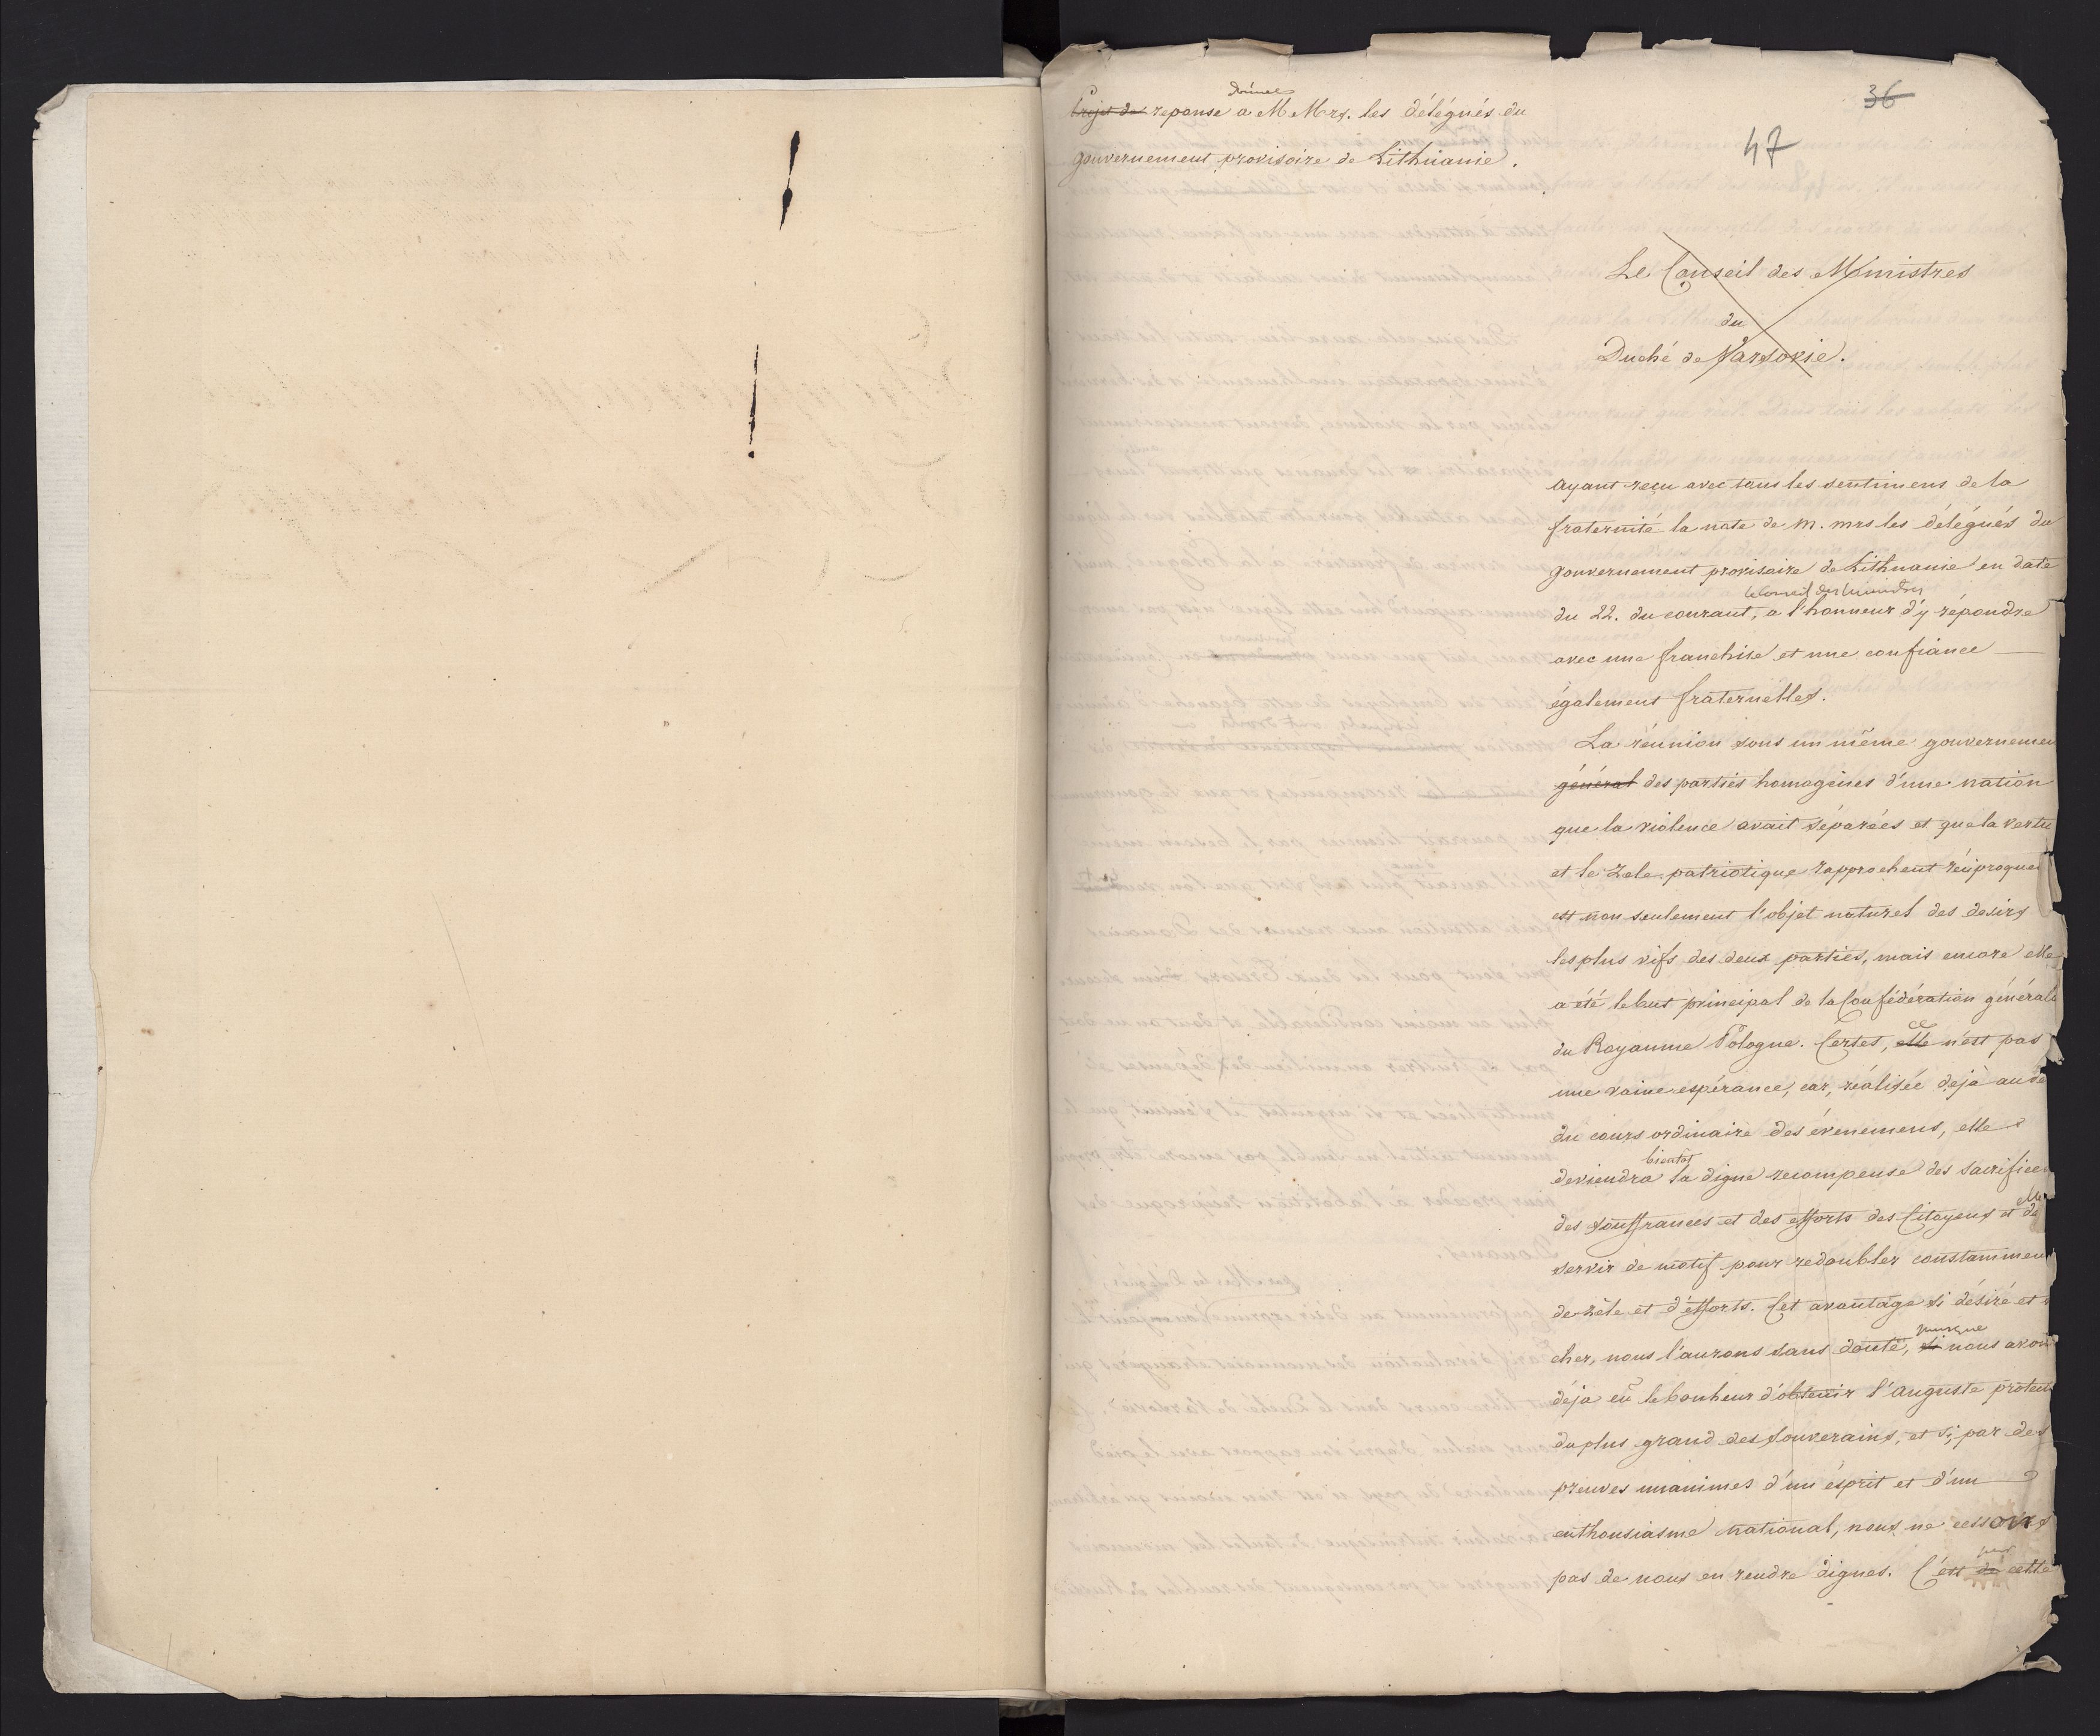 donnée
Projet de reponse a M Mrs. les délégués du
gouvernement provisoire de Lithuanie.
36
47
Le Conseil des Ministres
du
Duché de Varsovie.
ayant reçu avec tous les sentimens de la
fraternité la note de M. Mrs les délégués du
gouvernement provisoire de Lithuanie en date
le Conseil des Ministres
du 22. du courant, a l'honneur d'y répondre
avec une franchise et une confiance
également fraternelles.
La réunion sous un même gouvernemen
général des parties homogènes d'une nation
que la violence avait séparées et que la vertu
et le Zele patriotique rapprochent réciproque
est non seulement l'objet naturel des desirs
les plus vifs des deux parties, mais encore elle
a été le but principal de la Confédération générale
ce
du Royaume Pologne. Certes, elle n'est pas
une vaine espérance, car, réalisée déjà au de
du cours ordinaire des évenemens, elle
bientôt
deviendra la digne recompense des sacrifice
elle
des souffrances et des efforts des Citoyens et de
servir de motif pour redoubler constammen
de zèle et d'efforts. Cet avantage si désiré et
puisque
cher, nous l'aurons sans doute, si nous avon
déja eû le bonheur d'obtenir l'auguste protec
du plus grand des Souverains, et si, par des
preuves unanimes d'un ésprit et d'un
enthousiasme national, nous ne cessons
pour
pas de nous en rendre dignes. C'est de cette